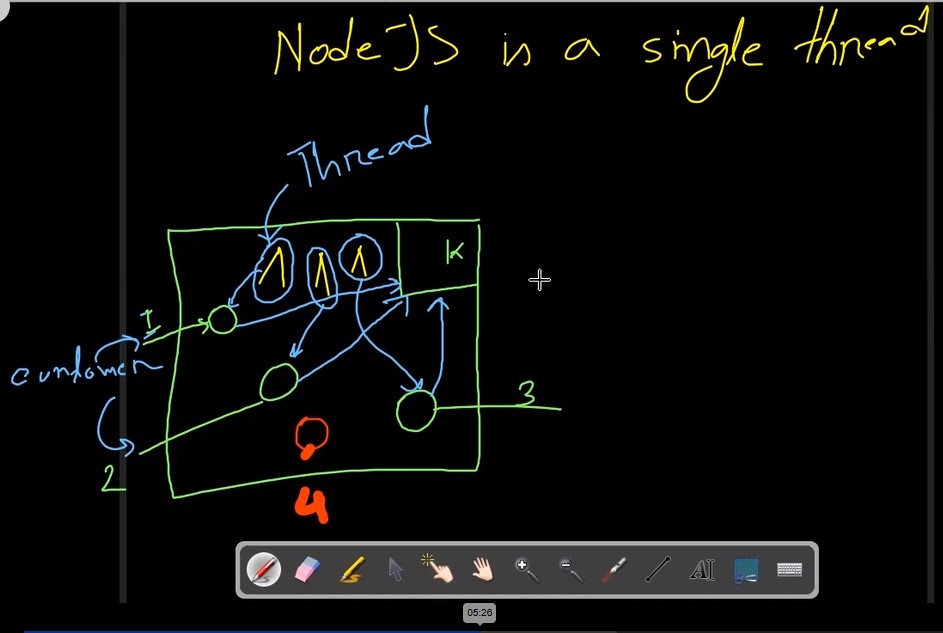 NodeJS is a single thread
Thread
K
1
customer
3
2
4
AI
05:26